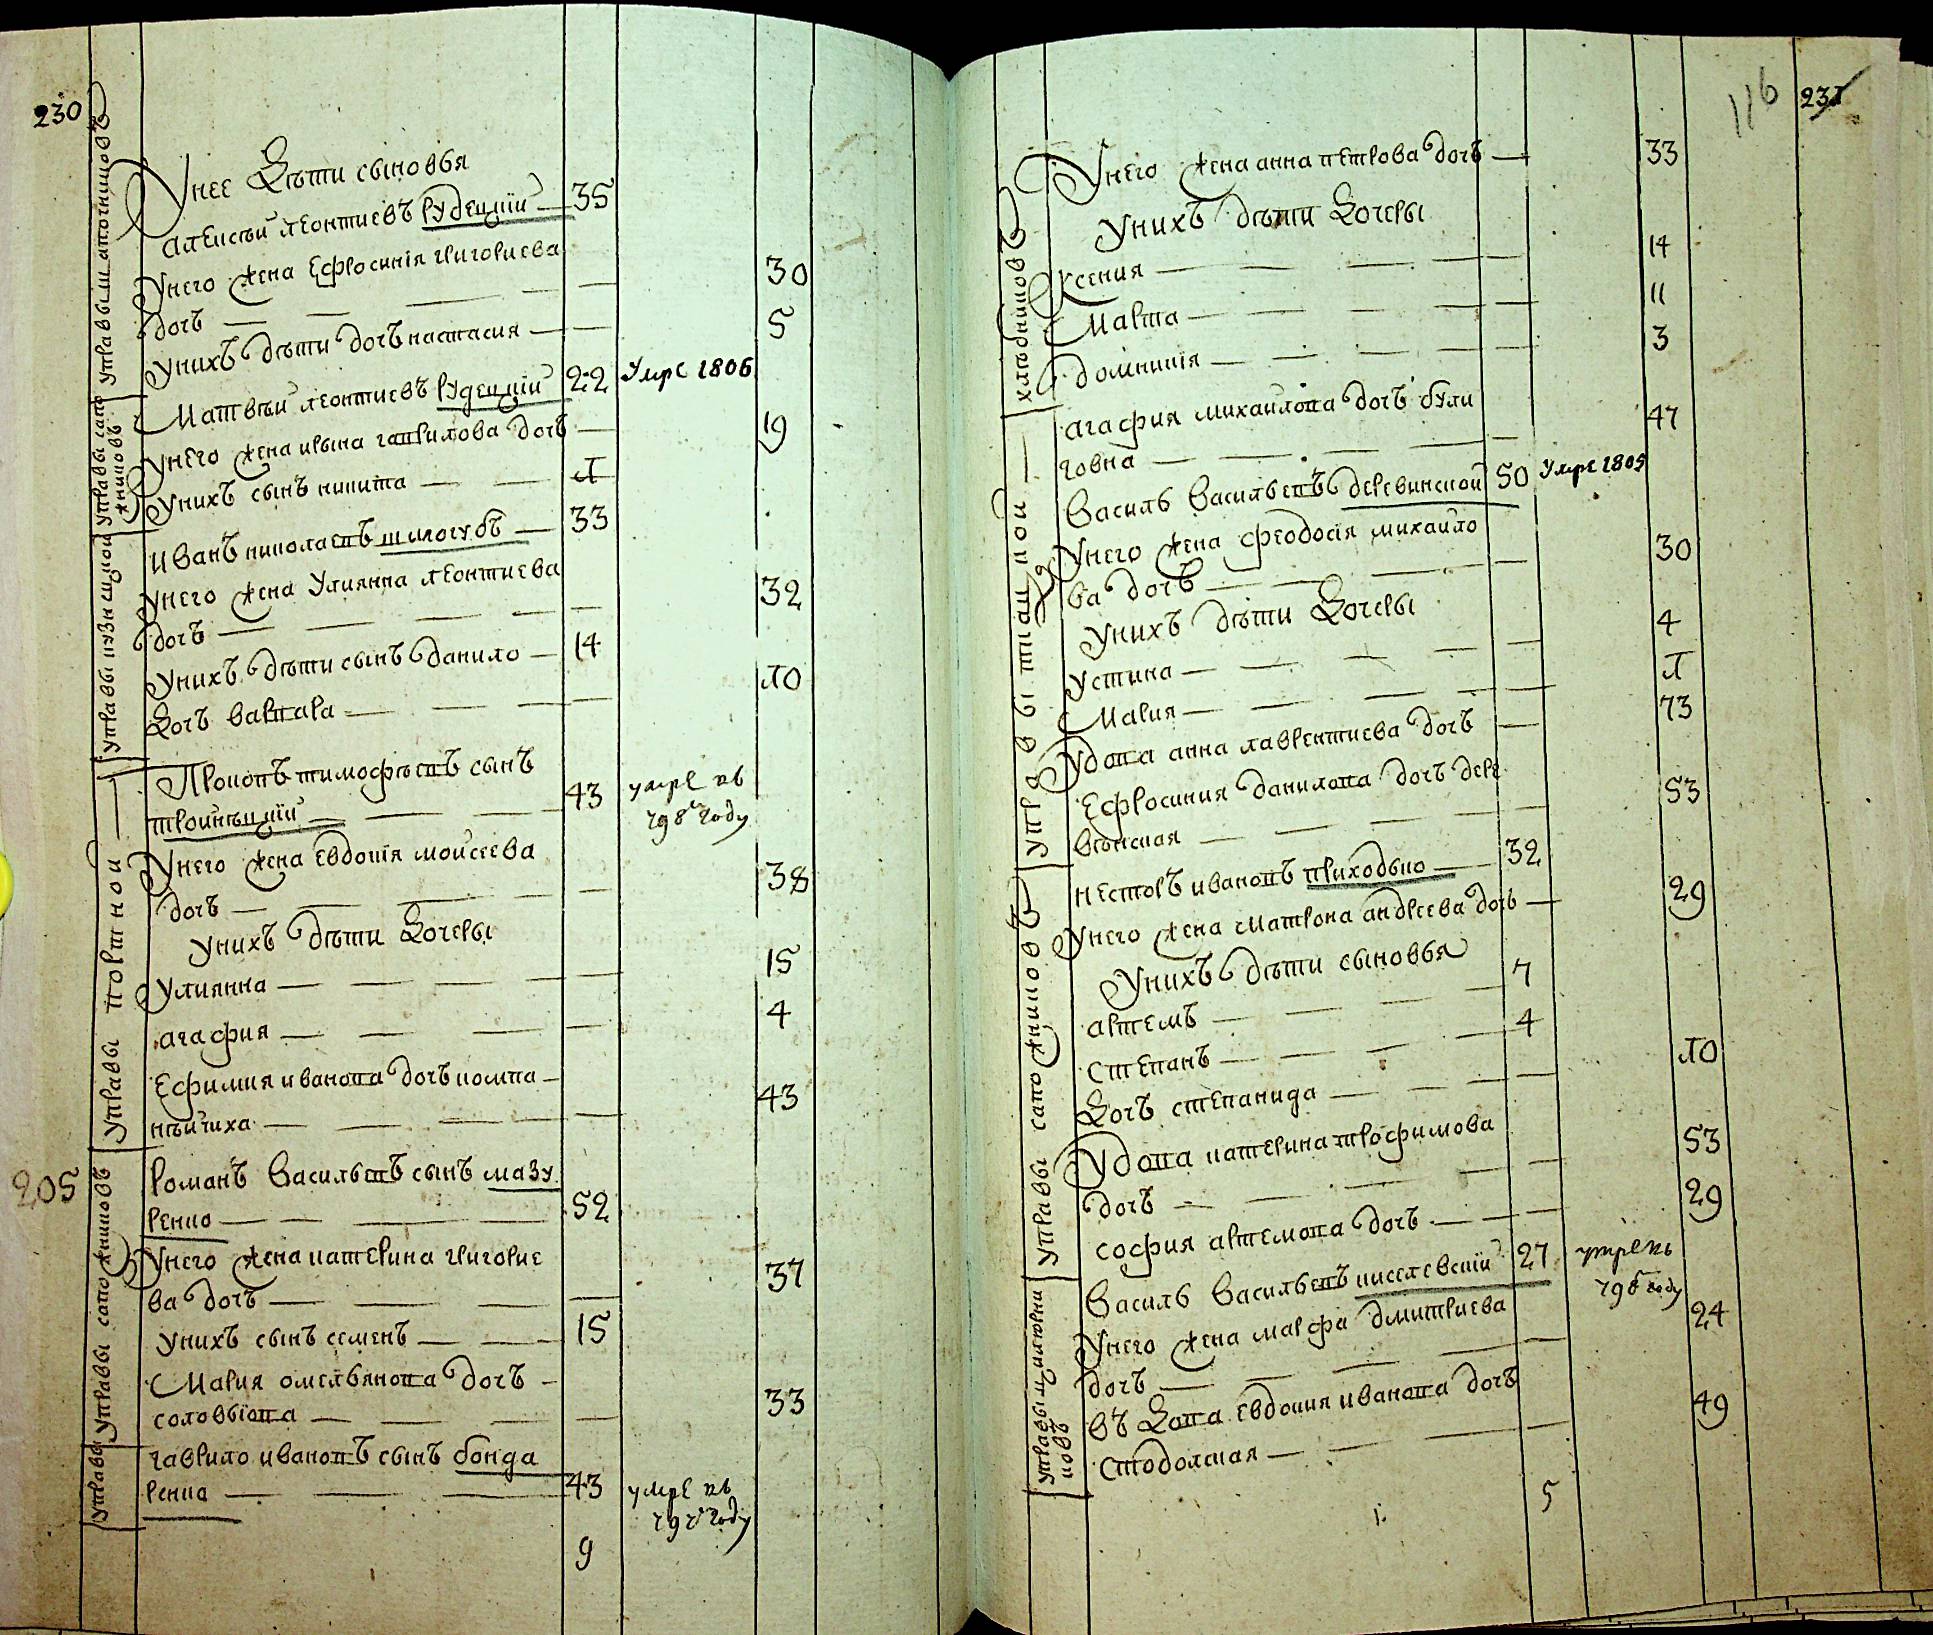 230
Управы шапочниковъ
Унее Дѣти сыновья
Алексѣй леонтиевъ Рудецкїй — 35
Унего жена Еѳросинїя григориева
дочь — 30
Унихъ дѣти дочь настасия — 5
Управы сапо
жниковъ
Матвѣй леонтиевъ Рудецкїй 22 Умре 1806
Унего жена ирына гаврилова дочь — 19
Унихъ сынъ никита — 1
Управы кузнецкой
Иванъ николаевъ шилогубъ — 33
Унего жена Улиянна леонтиева
дочь — 32
Унихъ дѣти сынъ данило — 14
Дочь варвара — 10
Управы портной
Прокопъ тимофѣевъ сынъ
тройнѣцкїй — 43 умре въ
798м году
Унего жена Евдокїя моисеева
дочь — 38
Унихъ дѣти Дочеры
Улиянна — 15
агафия — 4
Ефимия иванова дочь компа —
нѣйчиха — 43
205
Управы сапожниковъ
Романъ Васильевъ сынъ мазу
ренко — 52
Унего жена катерина григорие
ва дочь — 37
Унихъ сынъ семенъ — 15
Мария омельянова дочь —
соловьїова — 33
Управы
гаврило ивановъ сынъ бонда
ренко — 43 умре въ
797 году
9
116 231
хлѣбниковъ
Унего жена анна петрова дочь — 33
Унихъ дѣти Дочеры
Ксения — 14
Марта — 11
домникїя — 3
Управы ткацкой
агафия михайлова дочь були
говна — 47
Василь Васильевъ деревинской 50 Умре 1805
Унего жена феодосїя михайло
ва дочь — 30
Унихъ дѣти Дочеры
Устина — 4
Мария — 1
Удова анна лаврентиева дочь — 73
Ефросиния данилова дочь дере
вѣнская — 53
Управы сапожниковъ
Несторъ ивановъ приходько — 32
Унего жена матрона андреева дочь — 29
Унихъ дѣти сыновья
артемъ — 7
Степанъ — 4
Дочь степанида — 10
Удова катерина трофимова
дочь — 53
софия артемова дочь — 29
Управы цилюрни
ковъ
Василь Васильевъ киселевскїй 27 умре въ
798 году
Унего жена марфа дмитриева
дочь — 24
въДова евдокия иванова дочь
стодолская — 49
5